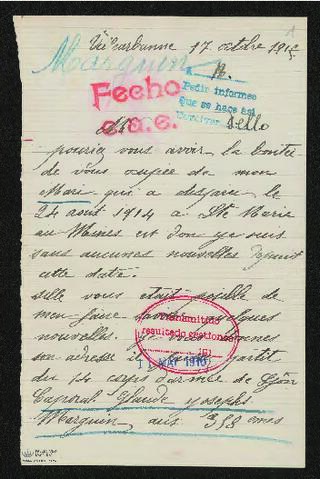 Villeurbanne 17 octobre 1915
Marguin
Fecho
e.a.e.
Pedir informes
Que se hace así
sello
pouriez vous avoir la bontée
de vous ocupee de mon
Mari qui a disparu le
24 aout 1914 a Ste Marie
au Mines est don je suis
sans aucunes nouvelles depuit
cette date.
sille vous était posible de
mon faire savoir quelques
nouvelles. je vous donnes
son adresse il fesait partit
du 14 corps d'armee de Lyon
Caporal Glaude yoseph
Marguin, aus 358 emes
Transmitido
resultado gestiones
1 MAY 1916